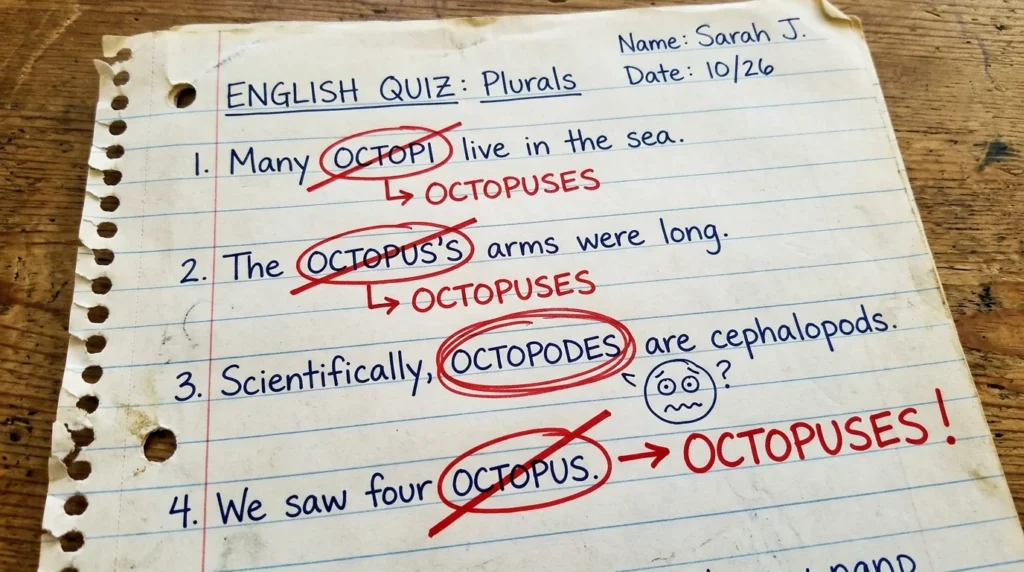 Name: Sarah J.
Date: 10/26
ENGLISH QUIZ: Plurals
1. Many OCTOPI live in the sea.
↳ OCTOPUSES
2. The OCTOPUS'S arms were long.
↳ OCTOPUSES
3. Scientifically, OCTOPODES are cephalopods.
?
4. We saw four OCTOPUS. → OCTOPUSES!